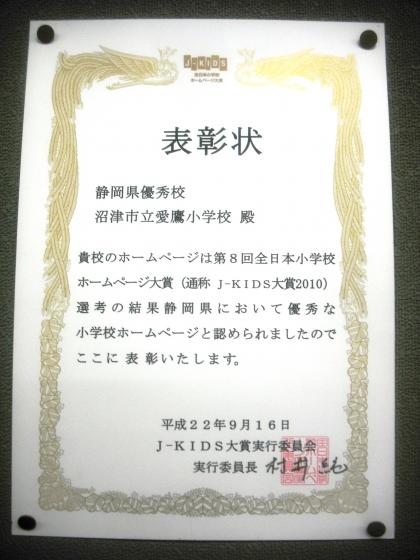 J-KIDS
全日本小学校
ホームページ大賞
表彰状
静岡県優秀校
沼津市立愛鷹小学校 殿
貴校のホームページは第８回全日本小学校
ホームページ大賞（通称 J-KIDS大賞2010）
選考の結果静岡県において優秀な
小学校ホームページと認められましたので
ここに 表 彰いたします。
平成２２年９月１６日
J-KIDS大賞実行委員会
実行委員長 村井純